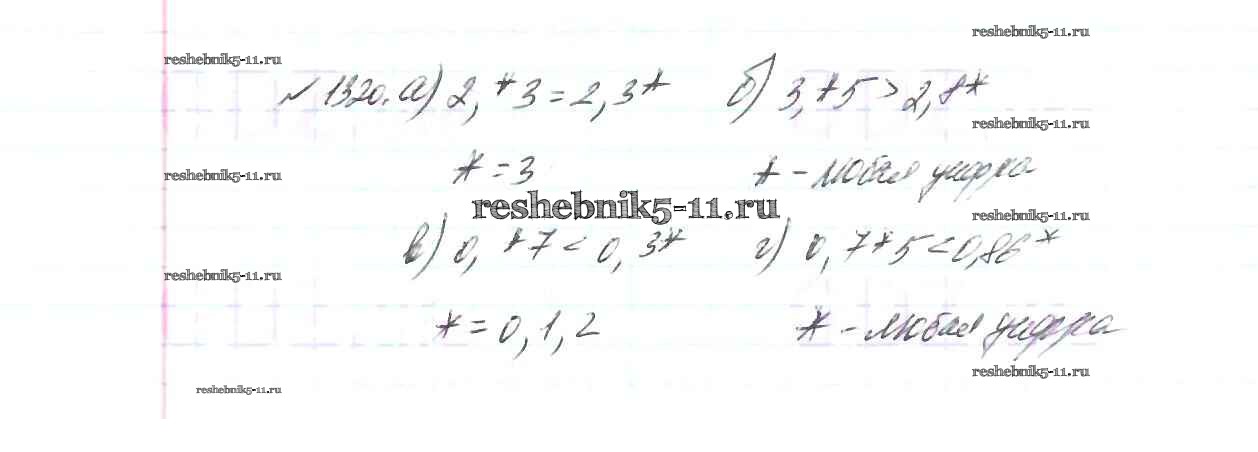 reshebnik5-11.ru
reshebnik5-11.ru
№ 1320. а) 2,*3 = 2,3* б) 3,*5 > 2,8*
reshebnik5-11.ru
* = 3 * - любая цифра
reshebnik5-11.ru
reshebnik5-11.ru
reshebnik5-11.ru
в) 0,*7 < 0,3* г) 0,7*5 < 0,86*
reshebnik5-11.ru
* = 0, 1, 2 * - любая цифра
reshebnik5-11.ru
reshebnik5-11.ru